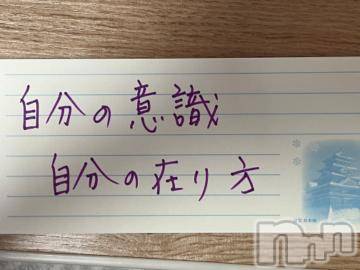 自分の意識
自分の在り方